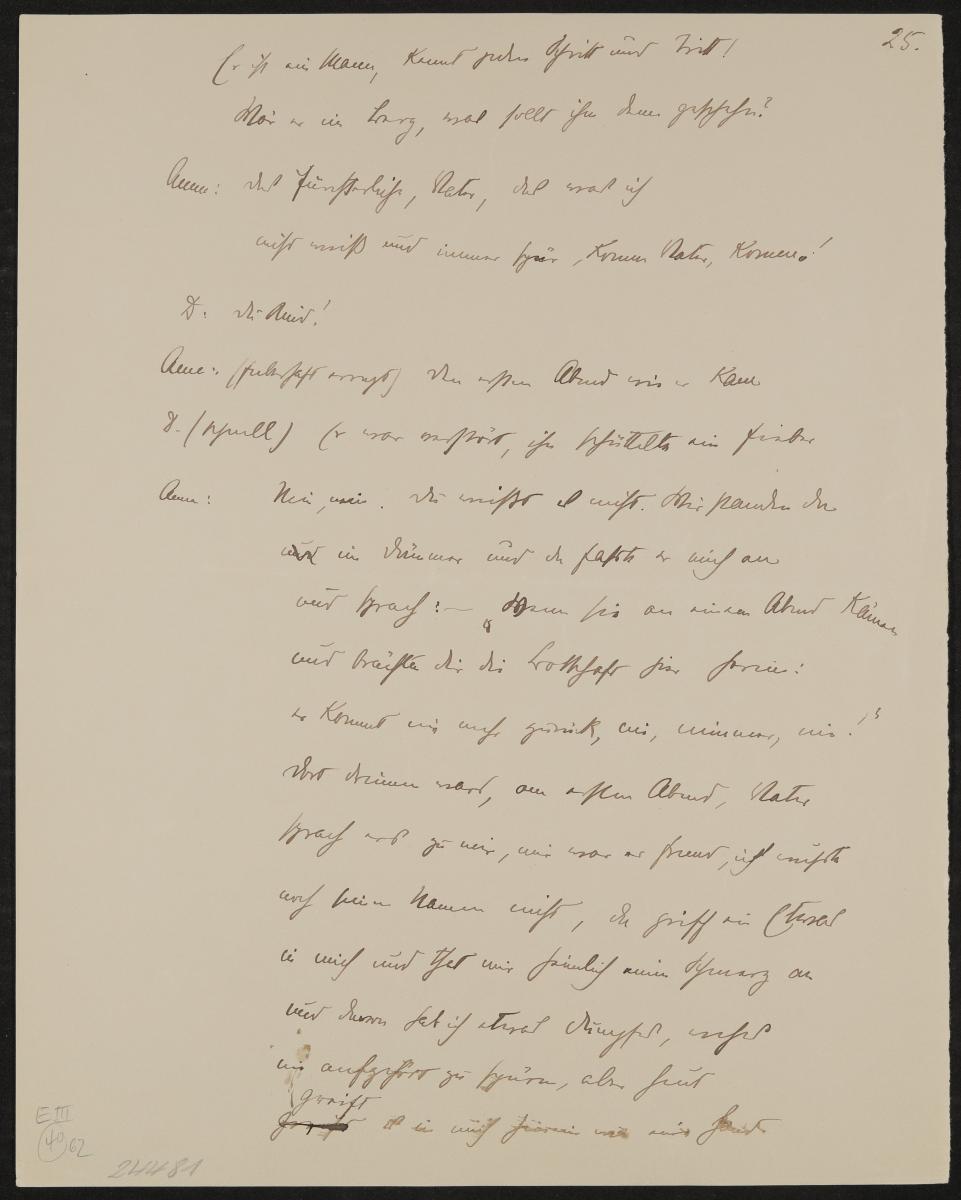 25.
Er ist ein Mann, kennt jeden Schritt und Tritt!
Wär er im Berg, was sollt ihm denn geschehn?
Anna: Das Fürchterliche, Vater, das was ich
nicht weiß und immer spür, komm Vater, komm!
D: Du Kind!
Anna: (fieberhaft erregt) Den ersten Abend wie er kam
D. (schnell) Er war verstört, ihn schüttelte ein Fieber
Anna: Nein, nein. Du weißt es nicht. Wir standen da
und im Dämmer und da faßte er mich an
und sprach: – „Wenn sie an einem Abend kämen
und brächten dir die Botschaft hier herein:
er kommt nie mehr zurück, nie, nimmer, nie!"
Dort drinnen ward, am ersten Abend, Vater
sprach er's zu mir, mir war er fremd, ich wußte
noch seinen Namen nicht, da griff ein Etwas
in mich und that mir heimlich einen Schmerz an
und davon hab ich etwas Dumpfes, wehes
nie aufgehört zu spüren, aber heut
greift
es in mich hinein wie eine Hand
E III
40 62
24481